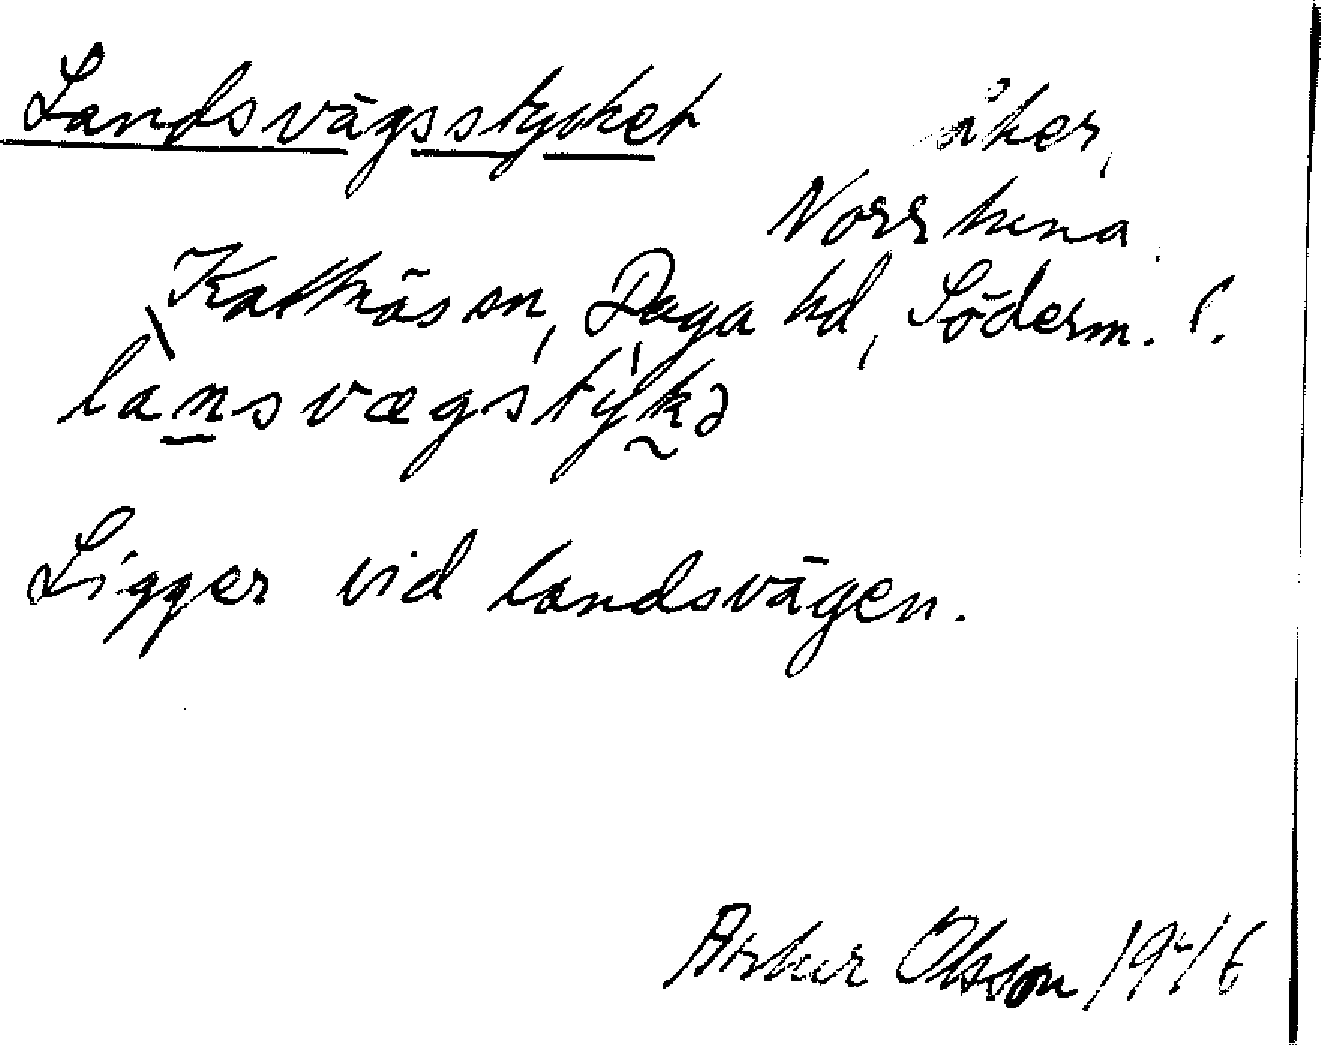 Landsvägsstycket åker,
Norrtuna
Kattnäs sn, Daga hd, Söderm. l.
lansvægstykə
Ligger vid landsvägen.
Arthur Olsson 1946